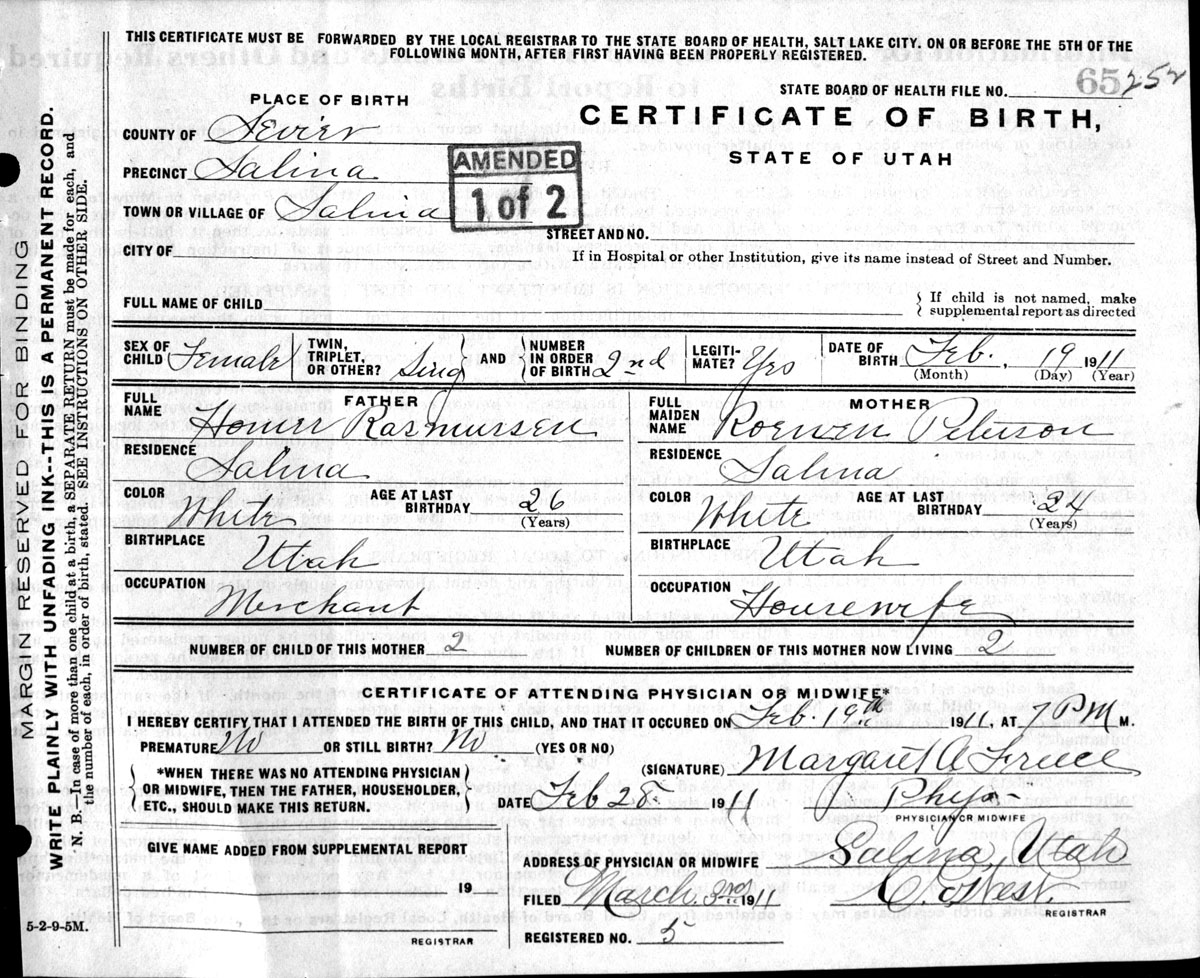 THIS CERTIFICATE MUST BE FORWARDED BY THE LOCAL REGISTRAR TO THE STATE BOARD OF HEALTH, SALT LAKE CITY. ON OR BEFORE THE 5TH OF THE
FOLLOWING MONTH, AFTER FIRST HAVING BEEN PROPERLY REGISTERED.
STATE BOARD OF HEALTH FILE NO. 65 252
PLACE OF BIRTH
CERTIFICATE OF BIRTH,
STATE OF UTAH
COUNTY OF Sevier
PRECINCT Salina
TOWN OR VILLAGE OF Salina
AMENDED
1 of 2
STREET AND NO.
CITY OF
If in Hospital or other Institution, give its name instead of Street and Number.
FULL NAME OF CHILD
If child is not named, make
supplemental report as directed
SEX OF CHILD Female
TWIN, TRIPLET, OR OTHER? Sing
AND NUMBER IN ORDER OF BIRTH 2nd
LEGITIMATE? Yes
DATE OF BIRTH Feb. 19 1911
(Month) (Day) (Year)
FATHER
FULL NAME Homer Rasmussen
RESIDENCE Salina
COLOR White
AGE AT LAST BIRTHDAY 26
(Years)
BIRTHPLACE Utah
OCCUPATION Merchant
MOTHER
FULL MAIDEN NAME Peterson
RESIDENCE Salina
COLOR White
AGE AT LAST BIRTHDAY 24
(Years)
BIRTHPLACE Utah
OCCUPATION Housewife
NUMBER OF CHILD OF THIS MOTHER 2
NUMBER OF CHILDREN OF THIS MOTHER NOW LIVING 2
CERTIFICATE OF ATTENDING PHYSICIAN OR MIDWIFE*
I HEREBY CERTIFY THAT I ATTENDED THE BIRTH OF THIS CHILD, AND THAT IT OCCURED ON Feb. 19th 1911, AT 7 PM M.
PREMATURE No OR STILL BIRTH? No (YES OR NO)
*WHEN THERE WAS NO ATTENDING PHYSICIAN
OR MIDWIFE, THEN THE FATHER, HOUSEHOLDER,
ETC., SHOULD MAKE THIS RETURN.
(SIGNATURE) Margaret A
DATE Feb 28 1911
PHYSICIAN OR MIDWIFE
GIVE NAME ADDED FROM SUPPLEMENTAL REPORT
19
REGISTRAR
ADDRESS OF PHYSICIAN OR MIDWIFE Salina, Utah
FILED March. 3rd 1911
C. West.
REGISTRAR
REGISTERED NO. 5
5-2-9-5M.
MARGIN RESERVED FOR BINDING
WRITE PLAINLY WITH UNFADING INK--THIS IS A PERMANENT RECORD.
N. B.—In case of more than one child at a birth, a SEPARATE RETURN must be made for each, and
the number of each, in order of birth, stated. SEE INSTRUCTIONS ON OTHER SIDE.